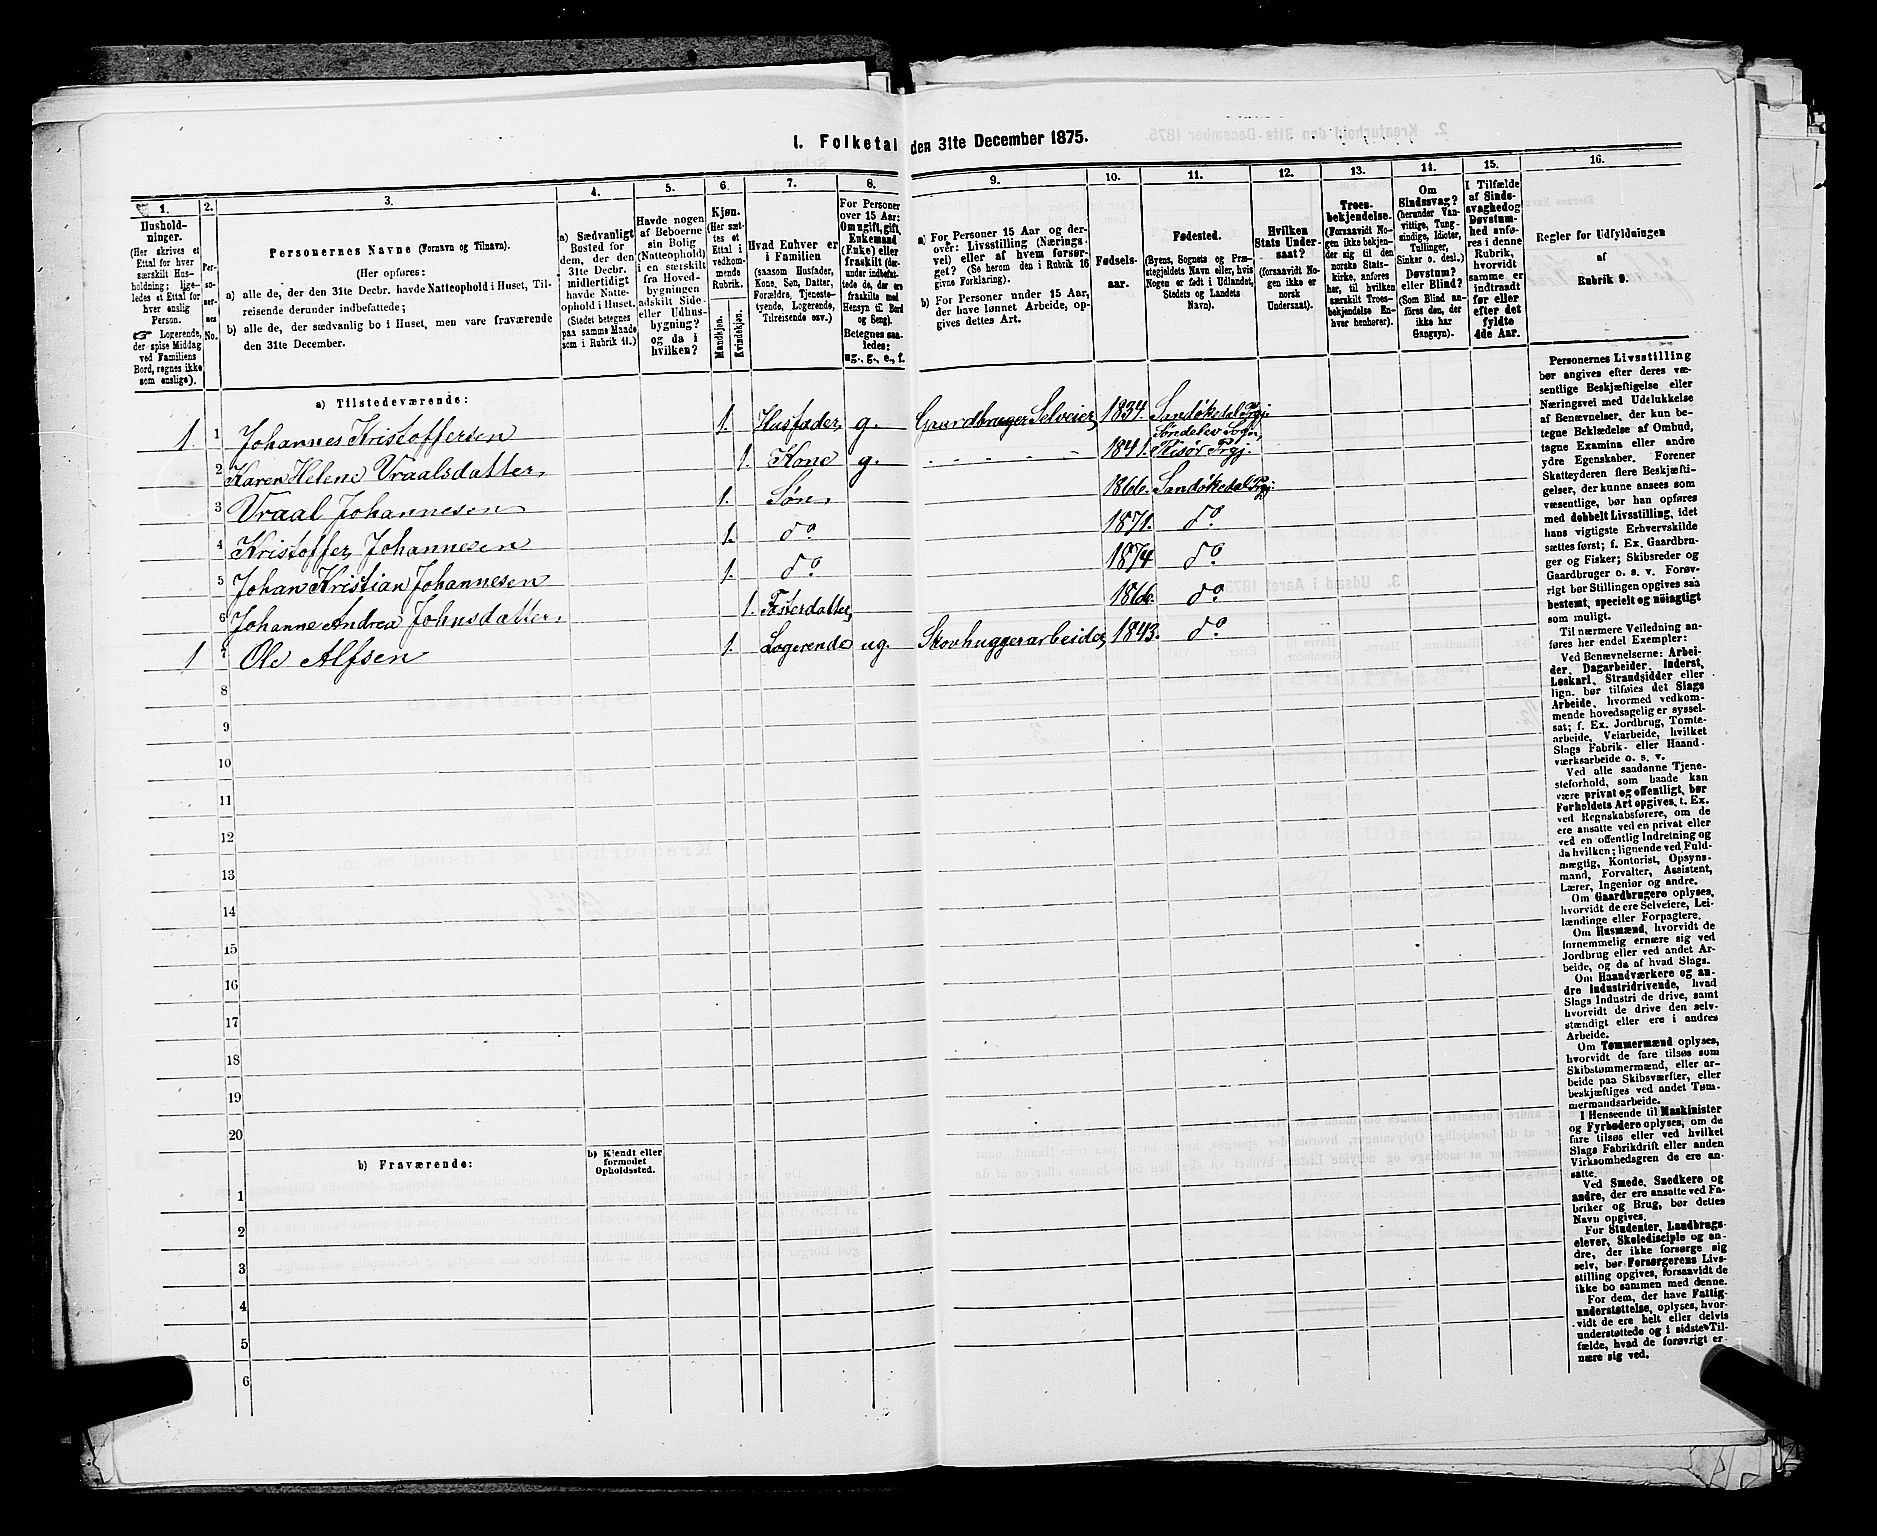 I. Folketal den 31te December 1875.
1. 2. 3. 4. 5. 6. 7. 8. 9. 10. 11. 12. 13. 14. 15. 16.
Husholdninger.
(Her skrives et
Ettal for hver
særskilt Husholdning;
ligeledes et Ettal for
hver enslig
Person.
☞ Logerende,
der spise Middag
ved Familiens
Bord, regnes ikke
som enslige).
Personernes No.
Personernes Navne (Fornavn og Tilnavn).
(Her opføres:
a) alle de, der den 31te Decbr. havde Natteophold i Huset, Tilreisende
derunder indbefattede;
b) alle de, der sædvanlig bo i Huset, men vare fraværende
den 31te December.
a) Sædvanligt
Bosted for
dem, der den
31te Decbr.
midlertidigt
havde Natteophold
i Huset.
(Stedet betegnes
paa samme Maade
som i Rubrik 11.)
Havde nogen
af Beboerne
sin Bolig
(Natteophold)
i en særskilt
fra Hovedbygningen
adskilt Side-
eller Udhusbygning?
og da i
hvilken?
Kjøn.
(Her sættes
et
Ettal i
vedkommende
Rubrik.
Mandkjøn.
Kvindekjøn.
Hvad Enhver er
i Familien
(saasom Husfader,
Kone, Søn, Datter,
Forældre, Tjenestetyende,
Logerende,
Tilreisende osv.)
For Personer
over 15 Aar:
Om ugift, gift,
Enkemand
(Enke) eller
fraskilt (derunder
indbefattede
de, der ere
fraskilte med
Hensyn til Bord
og Seng).
Betegnes saaledes:
ug., g., e., f.
a) For Personer 15 Aar og derover:
Livsstilling (Næringsvei)
eller af hvem forsørget?
(Se herom den i Rubrik 16
givne Forklaring).
b) For Personer under 15 Aar,
der have lønnet Arbeide, opgives
dettes Art.
Fødselsaar.
Fødested.
(Byens, Sognets og Præstegjeldets
Navn eller, hvis
Nogen er født i Udlandet,
Stedets og Landets
Navn).
Hvilken
Stats Undersaat?
(forsaavidt Nogen
ikke er
norsk
Undersaat).
Troesbekjendelse.
(Forsaavidt Nogen
ikke bekjender
sig til den
norske Statskirke,
anføres
her, til hvilken
særskilt Troesbekjendelse
Enhver
henhører).
Om
Sindssvag?
(herunder Vanvittige,
Tungsindige,
Idioter,
Tullinger,
Sinker o. desl.)
Døvstum?
eller Blind?
(Som Blind anføres
den, der
ikke har
Gangsyn).
I Tilfælde
af Sindssvaghed
og
Døvstumhed
anføres
i denne
Rubrik,
hvorvidt
samme er
indtraadt
før eller
efter det
fyldte
4de Aar.
Regler for Udfyldningen
af
Rubrik 9.
a) Tilstedeværende:
1. 1 Johannes Kristoffersen 1. Husfader, g. Gaardbruger Selveier 1834. Sandøkedal Prgj.
2 Karen Helene Vraalsdatter, 1. Kone g. - - - - - 1841. Søndelev Sogn, Risør Prgj.
3 Vraal Johannesen 1. Søn, 1866. Sandøkedal Prgj.
4 Kristoffer Johannesen 1. do 1871. do
5 Johan Kristian Johannesen 1. do 1874 do
6 Johanne Andrea Johnsdatter. 1. Fosterdatter, 1866. do
1 7 Ole Alfsen 1. Logerende ug. Skovhuggerarbeider, 1843. do
8
9
10
11
12
13
14
15
16
17
18
19
20
b) Fraværende:
b) Kjendt eller
formodet
Opholdssted.
1
2
3
4
5
6
Personernes Livsstilling
bør angives efter deres væsentlige
Beskjæftigelse eller
Næringsvei med Udelukkelse
af Benævnelser, der kun betegne
Beklædelse af Ombud,
tagne Examina eller andre
ydre Egenskaber. Forener
Skatteyderen flere Beskjæftigelser,
der kunne ansees som
væsentlige, bør han opføres
med dobbelt Livsstilling, idet
hans vigtigste Erhvervskilde
sættes først; f. Ex. Gaardbruger
og Fisker; Skibsreder og
Gaardbruger o. s. v. Forøvrigt
bør Stillingen opgives saa
bestemt, specielt og nøiagtigt
som muligt.
Til nærmere Veiledning anføres
her endel Exempler:
Ved Benævnelserne: Arbeider,
Dagarbeider, Inderst,
Løskarl, Strandsidder eller
lign. bør tilføies det Slags
Arbeide, hvormed vedkommende
hovedsagelig er sysselsat;
f. Ex. Jordbrug, Tomtearbeide,
Veiarbeide, hvilket
Slags Fabrik- eller Haandværksarbeide
o. s. v.
Ved alle saadanne Tjenesteforhold,
som baade kan
være privat og offentligt, bør
Forholdets Art opgives, t. Ex.
ved Regnskabsførere, om de
ere ansatte ved en privat eller
en offentlig Indretning og
da hvilken; lignende ved Fuldmægtig,
Kontorist, Opsynsmand,
Forvalter, Assistent,
Lærer, Ingeniør og andre.
Om Gaardbrugere oplyses,
hvorvidt de ere Selveiere, Leilændinge
eller Forpagtere.
Om Husmænd, hvorvidt de
fornemmelig ernære sig ved
Jordbrug eller ved andet Arbeide,
og da af hvad Slags.
Om Haandværkere og andre
Industridrivende, hvad
Slags Industri de drive, samt
hvorvidt de drive den selvstændigt
eller ere i andres
Arbeide.
Om Tømmermænd oplyses,
hvorvidt de fare tilsøs som
Skibstømmermænd, eller arbeide
paa Skibsværfter, eller
beskjæftiges ved andet Tømmermandsarbeide.
I Henseende til Maskinister
og Fyrbødere oplyses, om de
fare tilsøs eller ved hvilket
Slags Fabrikdrift eller anden
Virksomhedsgren de ere ansatte.
Ved Smede, Snedkere og
andre, der ere ansatte ved Fabriker
og Brug, bør dettes
Navn opgives.
For Studenter, Landbrugselever,
Skoledisciple og andre,
der ikke forsørge sig
selv, bør Forsørgerens Livsstilling
opgives, forsaavidt de
ikke bo sammen med denne.
For dem, der have Fattigunderstøttelse,
oplyses, hvorvidt
de ere helt eller delvis
understøttede og i sidste Tilfælde,
hvad de forøvrigt ernære
sig ved.